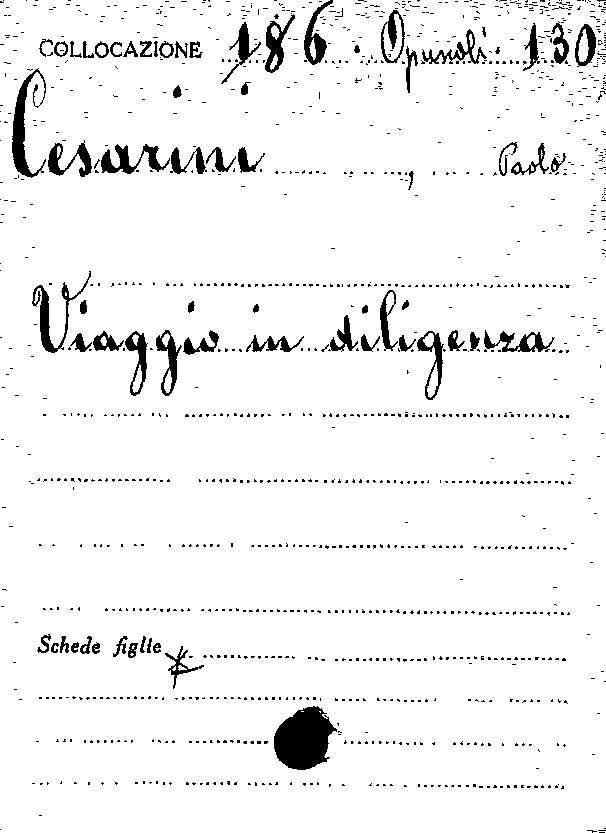 COLLOCAZIONE 186. Opuscoli. 130
Cesarini, Paolo
Viaggio in diligenza
Schede figlie